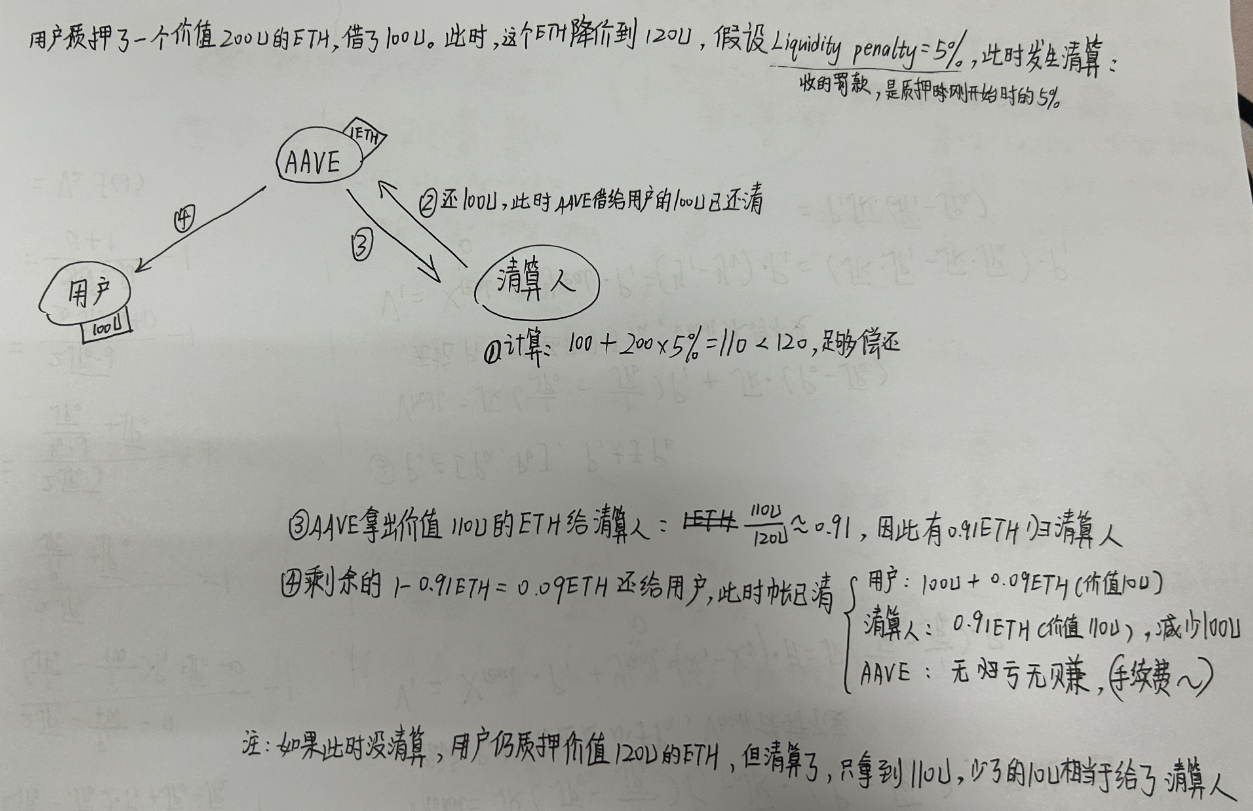 用户质押了一个价值200U的ETH,借了100U。此时,这个ETH降价到120U,假设Liquidity penalty=5%,此时发生清算:
收的罚款,是质押时刚开始时的5%
1ETH
AAVE
②还100U,此时AAVE借给用户的100U已还清
④
③
用户
100U
清算人
①计算: 100+200×5%=110<120,足够偿还
③AAVE拿出价值110U的ETH给清算人: 1ETH 110U/120U≈0.91,因此有0.91ETH归清算人
④剩余的1-0.91ETH=0.09ETH还给用户,此时帐已清
用户: 100U+0.09ETH(价值10U)
清算人: 0.91ETH(价值110U),减少100U
AAVE: 无亏无赚,(手续费~)
注:如果此时没清算,用户仍质押价值120U的ETH,但清算了,只拿到110U,少了的10U相当于给了清算人